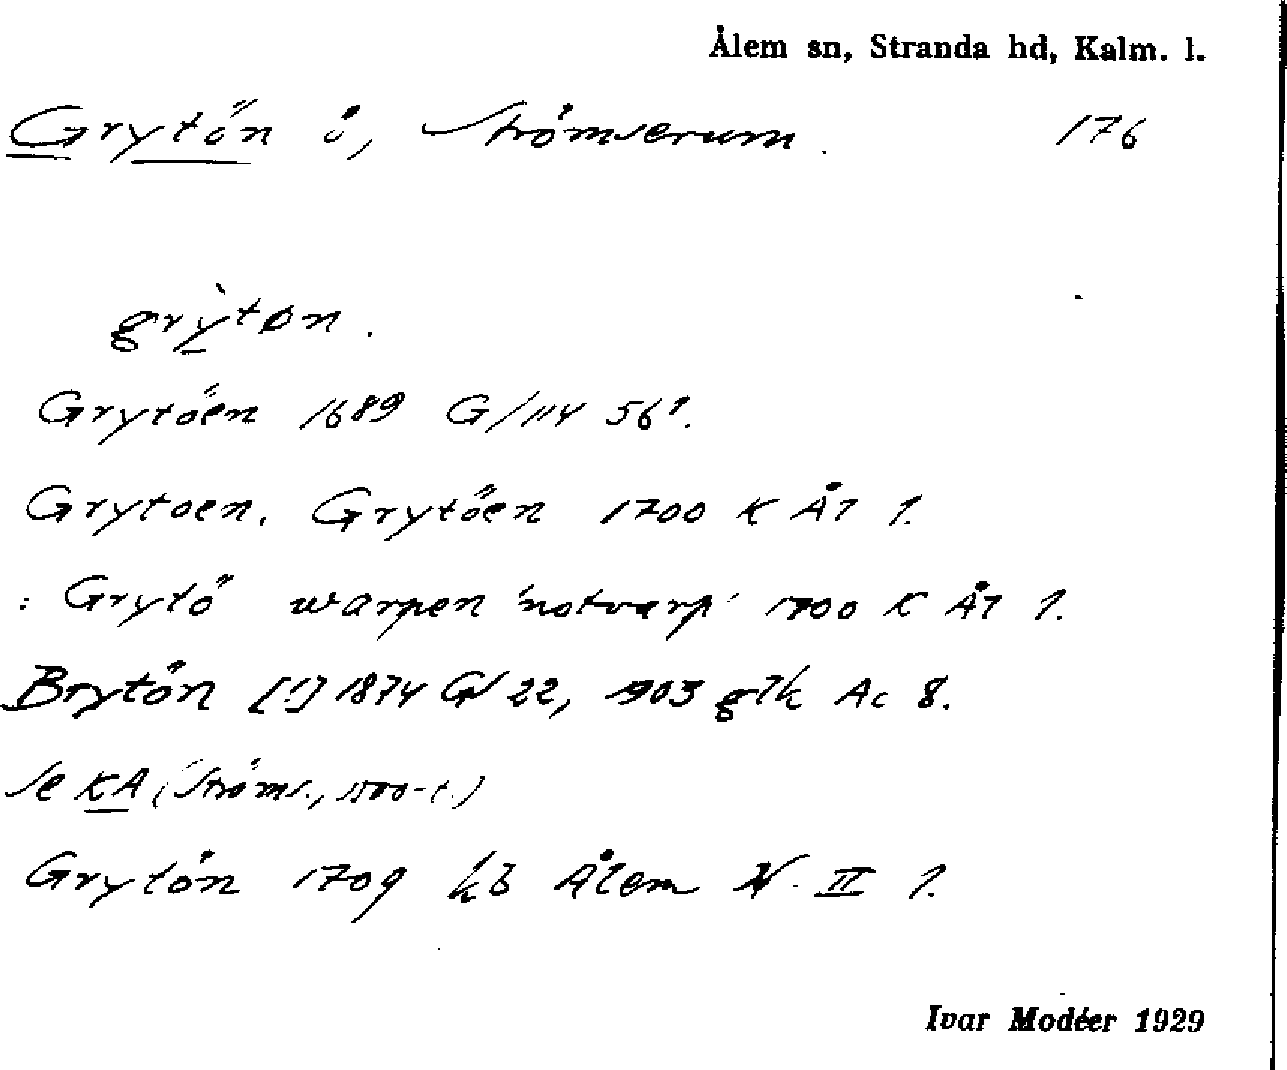 Ålem sn, Stranda hd, Kalm. l.
Grytön ö, Strömserum. 176
grỳtøn.
Grytöen 1689 G/114 56¹.
Grytoen, Grytöen 1700 K Å7 1.
: Grytö warpen 'notvarp' 1700 K Å7 1.
Brytön [!] 1874 G/22, 1903 glk Ac 8.
Se KA (Ströms., 1700-t.)
Grytön 1709 kb Ålem N. II 1.
Ivar Modéer 1929